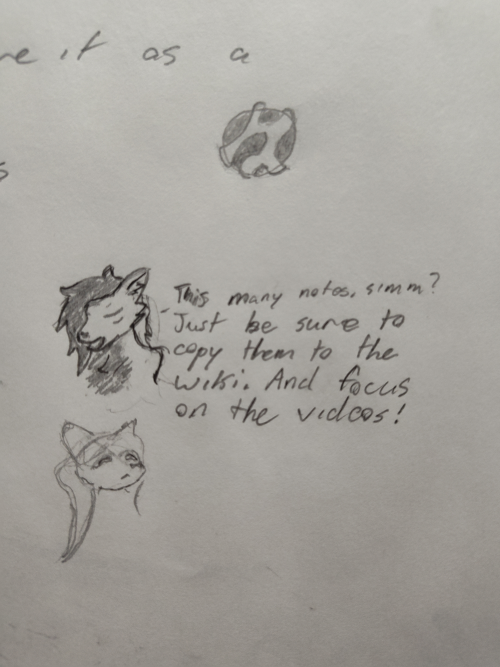 re it as a
s
This many notes, simm?
Just be sure to
copy them to the
wiki. And focus
on the videos!